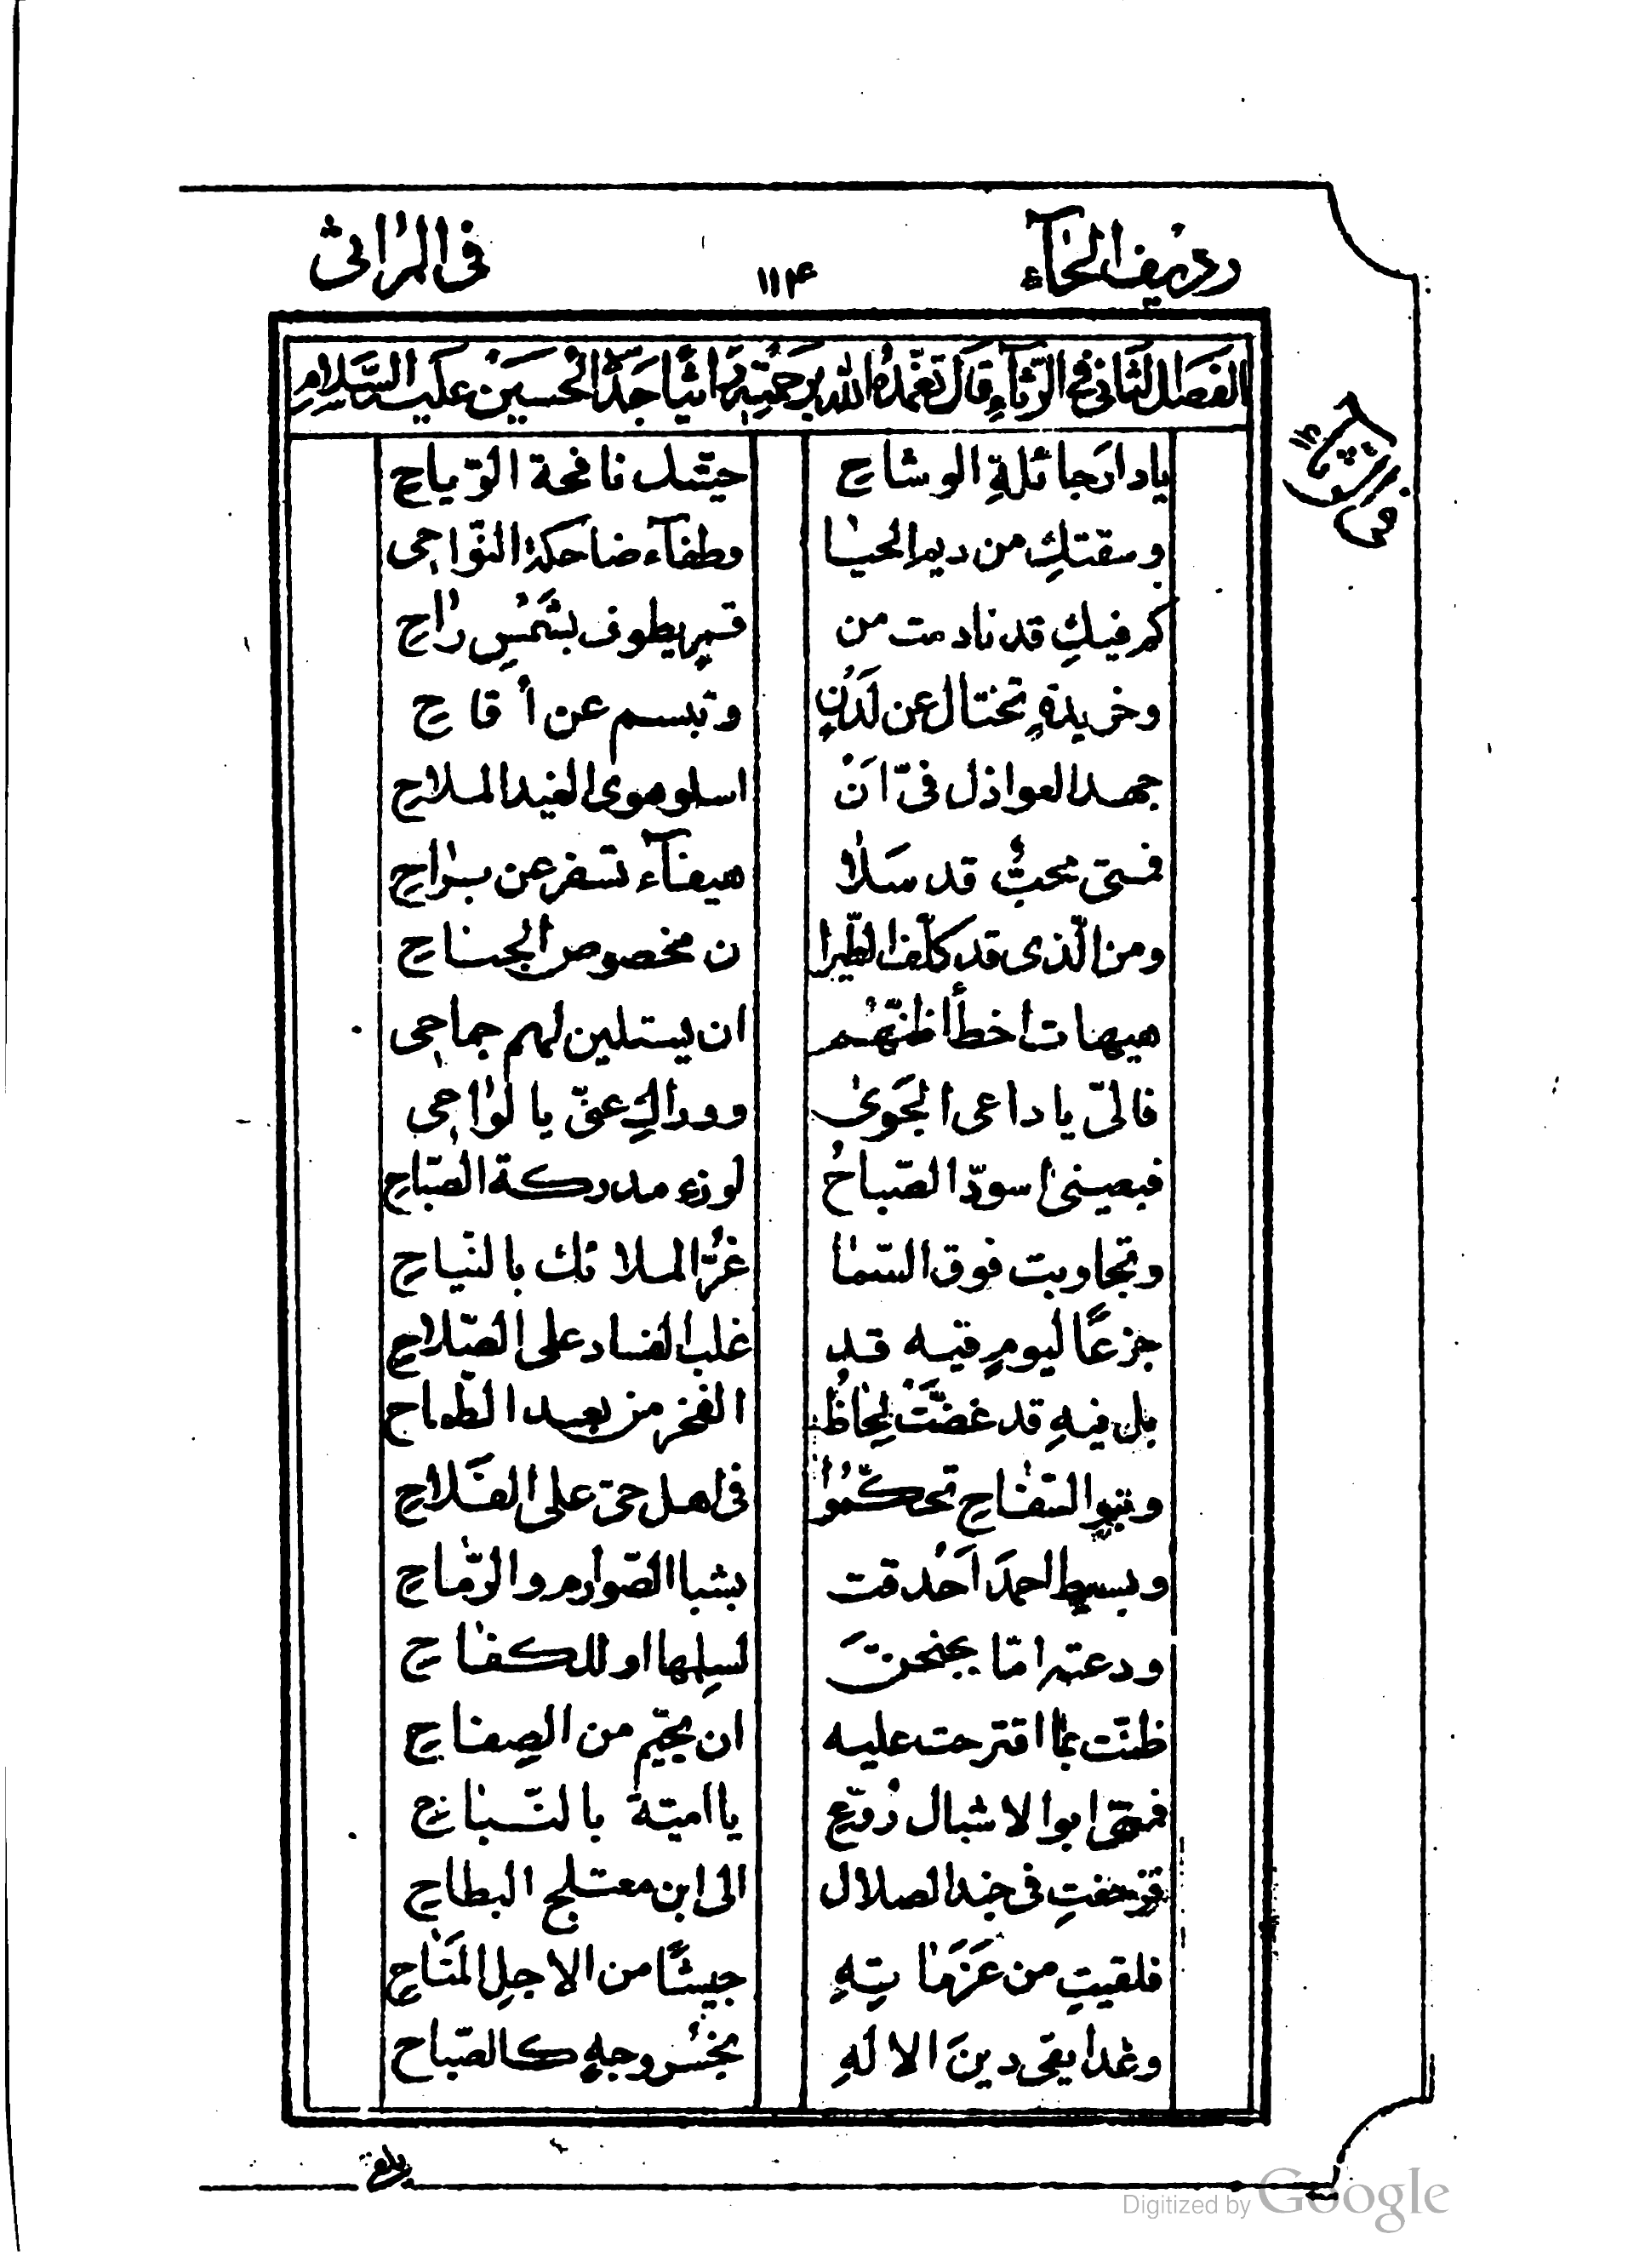 رديف الحآء ١١۴ فى المراثى
الفصل الثانى فى الرّثآءِ قال تغمّده الله برحمته راثيًا جدّه الحسين عليه السّلام
فى الرثاء
يا دارَ جائلةِ الوشاح حيّتك نافحة الرّياح
وسقتكِ من ديم الحيا وطفآء ضاحكة النّواحى
كم فيكِ قد نادمت من قمرٍ يطوف بشَمْسِ راح
وخريدةٍ تختال عن لَدُنٍ وتبسم عن أقاح
جهد العواذل فىّ اَنْ اسلو هوى الغيد الملاح
فمتى محبٌّ قد سَلا هيفآء تسفر عن براح
ومن الّذى قد كلّف الطّيرا ن مخصوص الجناح
هيهات اخطأ ظنّهُم ان يستلين لهم جماحى
فالىّ يا داعى الجَوى ووراكِ عنّى يا لواحى
فبعينىَ اسودّ الصّباحُ لوزء مدركة الصّباح
وتجاوبت فوق السّما غرُّ الملائك بالنّياح
جزعًا ليومٍ فيه قد غلب الفساد على الصّلاح
بل فيهِ قد غضّتْ لِحاظُ الفخر من بعد الطّماح
وبنو السّفاح تحكّمُوا فى اهل حىّ على الفَلاح
وبسبط احمدَ اَحْدقت بشبا الصّوارم والرّماح
ودعته امّا يجنحنَ لسِلمها او للكفاح
ظنّت بما اقترحت عليه ان يجيّم من الصِفاح
فمتى ابو الاشبال رُوّع يا اميّة بالنّباح
فزحفتِ فى جند الضلال الى ابن معتلج البطاح
فلقيتِ من عَزَماتِهِ جيشًا من الاجلِ المتَاح
وغدا يقى دينَ الالهِ بخُسر وجهٍ كالصّباح
Digitized by Google